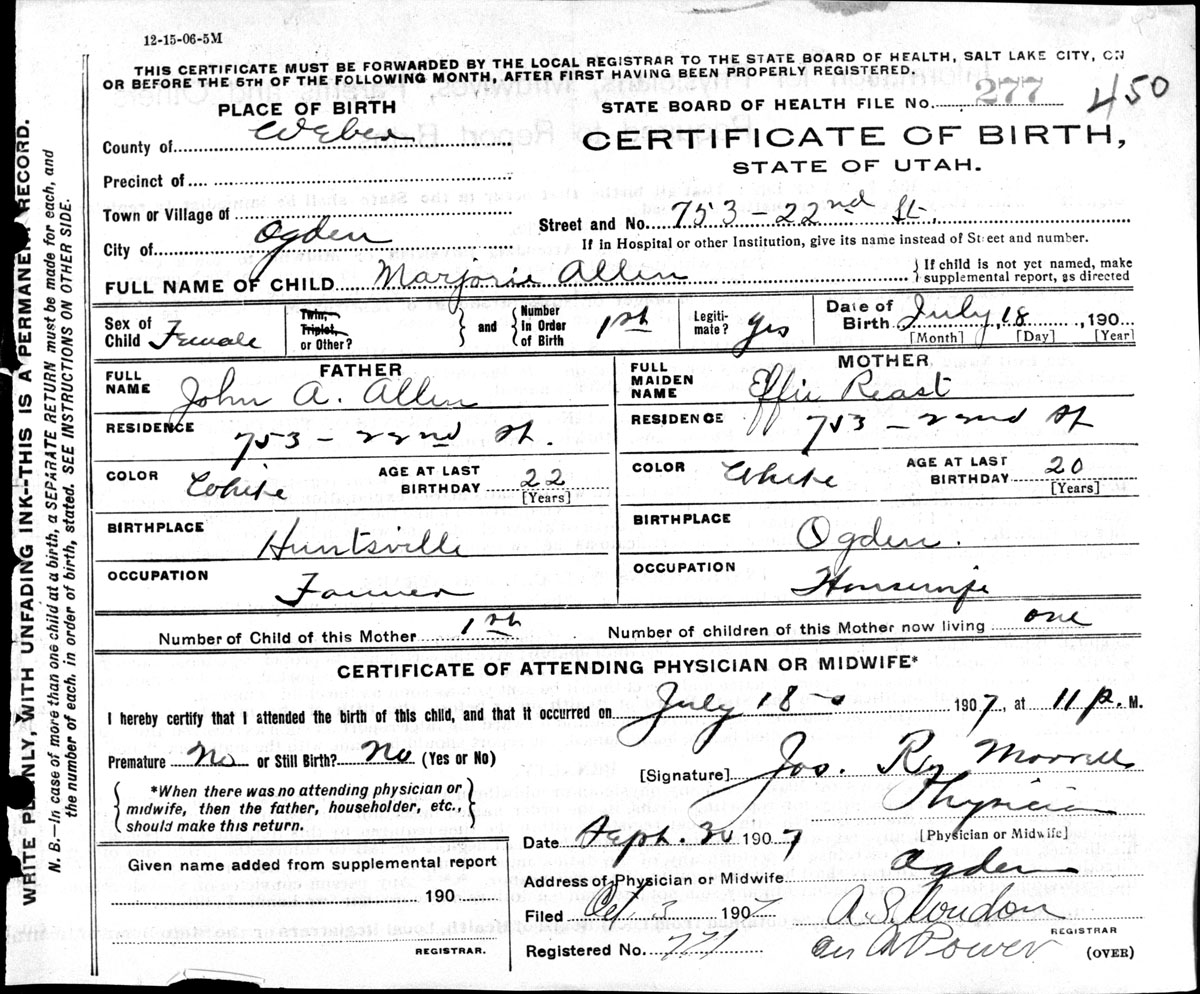 12-15-06-5M
THIS CERTIFICATE MUST BE FORWARDED BY THE LOCAL REGISTRAR TO THE STATE BOARD OF HEALTH, SALT LAKE CITY, ON
OR BEFORE THE 5TH OF THE FOLLOWING MONTH, AFTER FIRST HAVING BEEN PROPERLY REGISTERED.
PLACE OF BIRTH
STATE BOARD OF HEALTH FILE No. 277 450
County of Weber
CERTIFICATE OF BIRTH,
STATE OF UTAH.
Precinct of
Town or Village of
Street and No. 753 - 22nd St.
City of Ogden
If in Hospital or other Institution, give its name instead of Street and number.
FULL NAME OF CHILD Marjorie Allen
If child is not yet named, make
supplemental report, as directed
Sex of Child Female
Twin, Triplet, or Other?
and
Number In Order of Birth 1st
Legiti-mate? Yes
Date of Birth July 18, 190
[Month] [Day] [Year]
FATHER
FULL NAME John A. Allen
MOTHER
FULL MAIDEN NAME Effie Reast
RESIDENCE 753 - 22nd St.
RESIDENCE 753 - 22nd St
COLOR White
AGE AT LAST BIRTHDAY 22 [Years]
COLOR White
AGE AT LAST BIRTHDAY 20 [Years]
BIRTHPLACE Huntsville
BIRTHPLACE Ogden.
OCCUPATION Farmer
OCCUPATION Housewife
Number of Child of this Mother 1st
Number of children of this Mother now living one
CERTIFICATE OF ATTENDING PHYSICIAN OR MIDWIFE*
I hereby certify that I attended the birth of this child, and that it occurred on July 18 1907, at 11 p. M.
Premature No or Still Birth? No (Yes or No)
[Signature] Jos. R. Morrell
*When there was no attending physician or
midwife, then the father, householder, etc.,
should make this return.
Physician
[Physician or Midwife]
Date Sept. 30 1907
Given name added from supplemental report
190
REGISTRAR.
Address of Physician or Midwife. Ogden
Filed Oct 3 1907
REGISTRAR
Registered No. 777
Power
(OVER)
WRITE PLAINLY, WITH UNFADING INK--THIS IS A PERMANENT RECORD.
N. B.—In case of more than one child at a birth, a SEPARATE RETURN must be made for each, and
the number of each, in order of birth, stated. SEE INSTRUCTIONS ON OTHER SIDE.